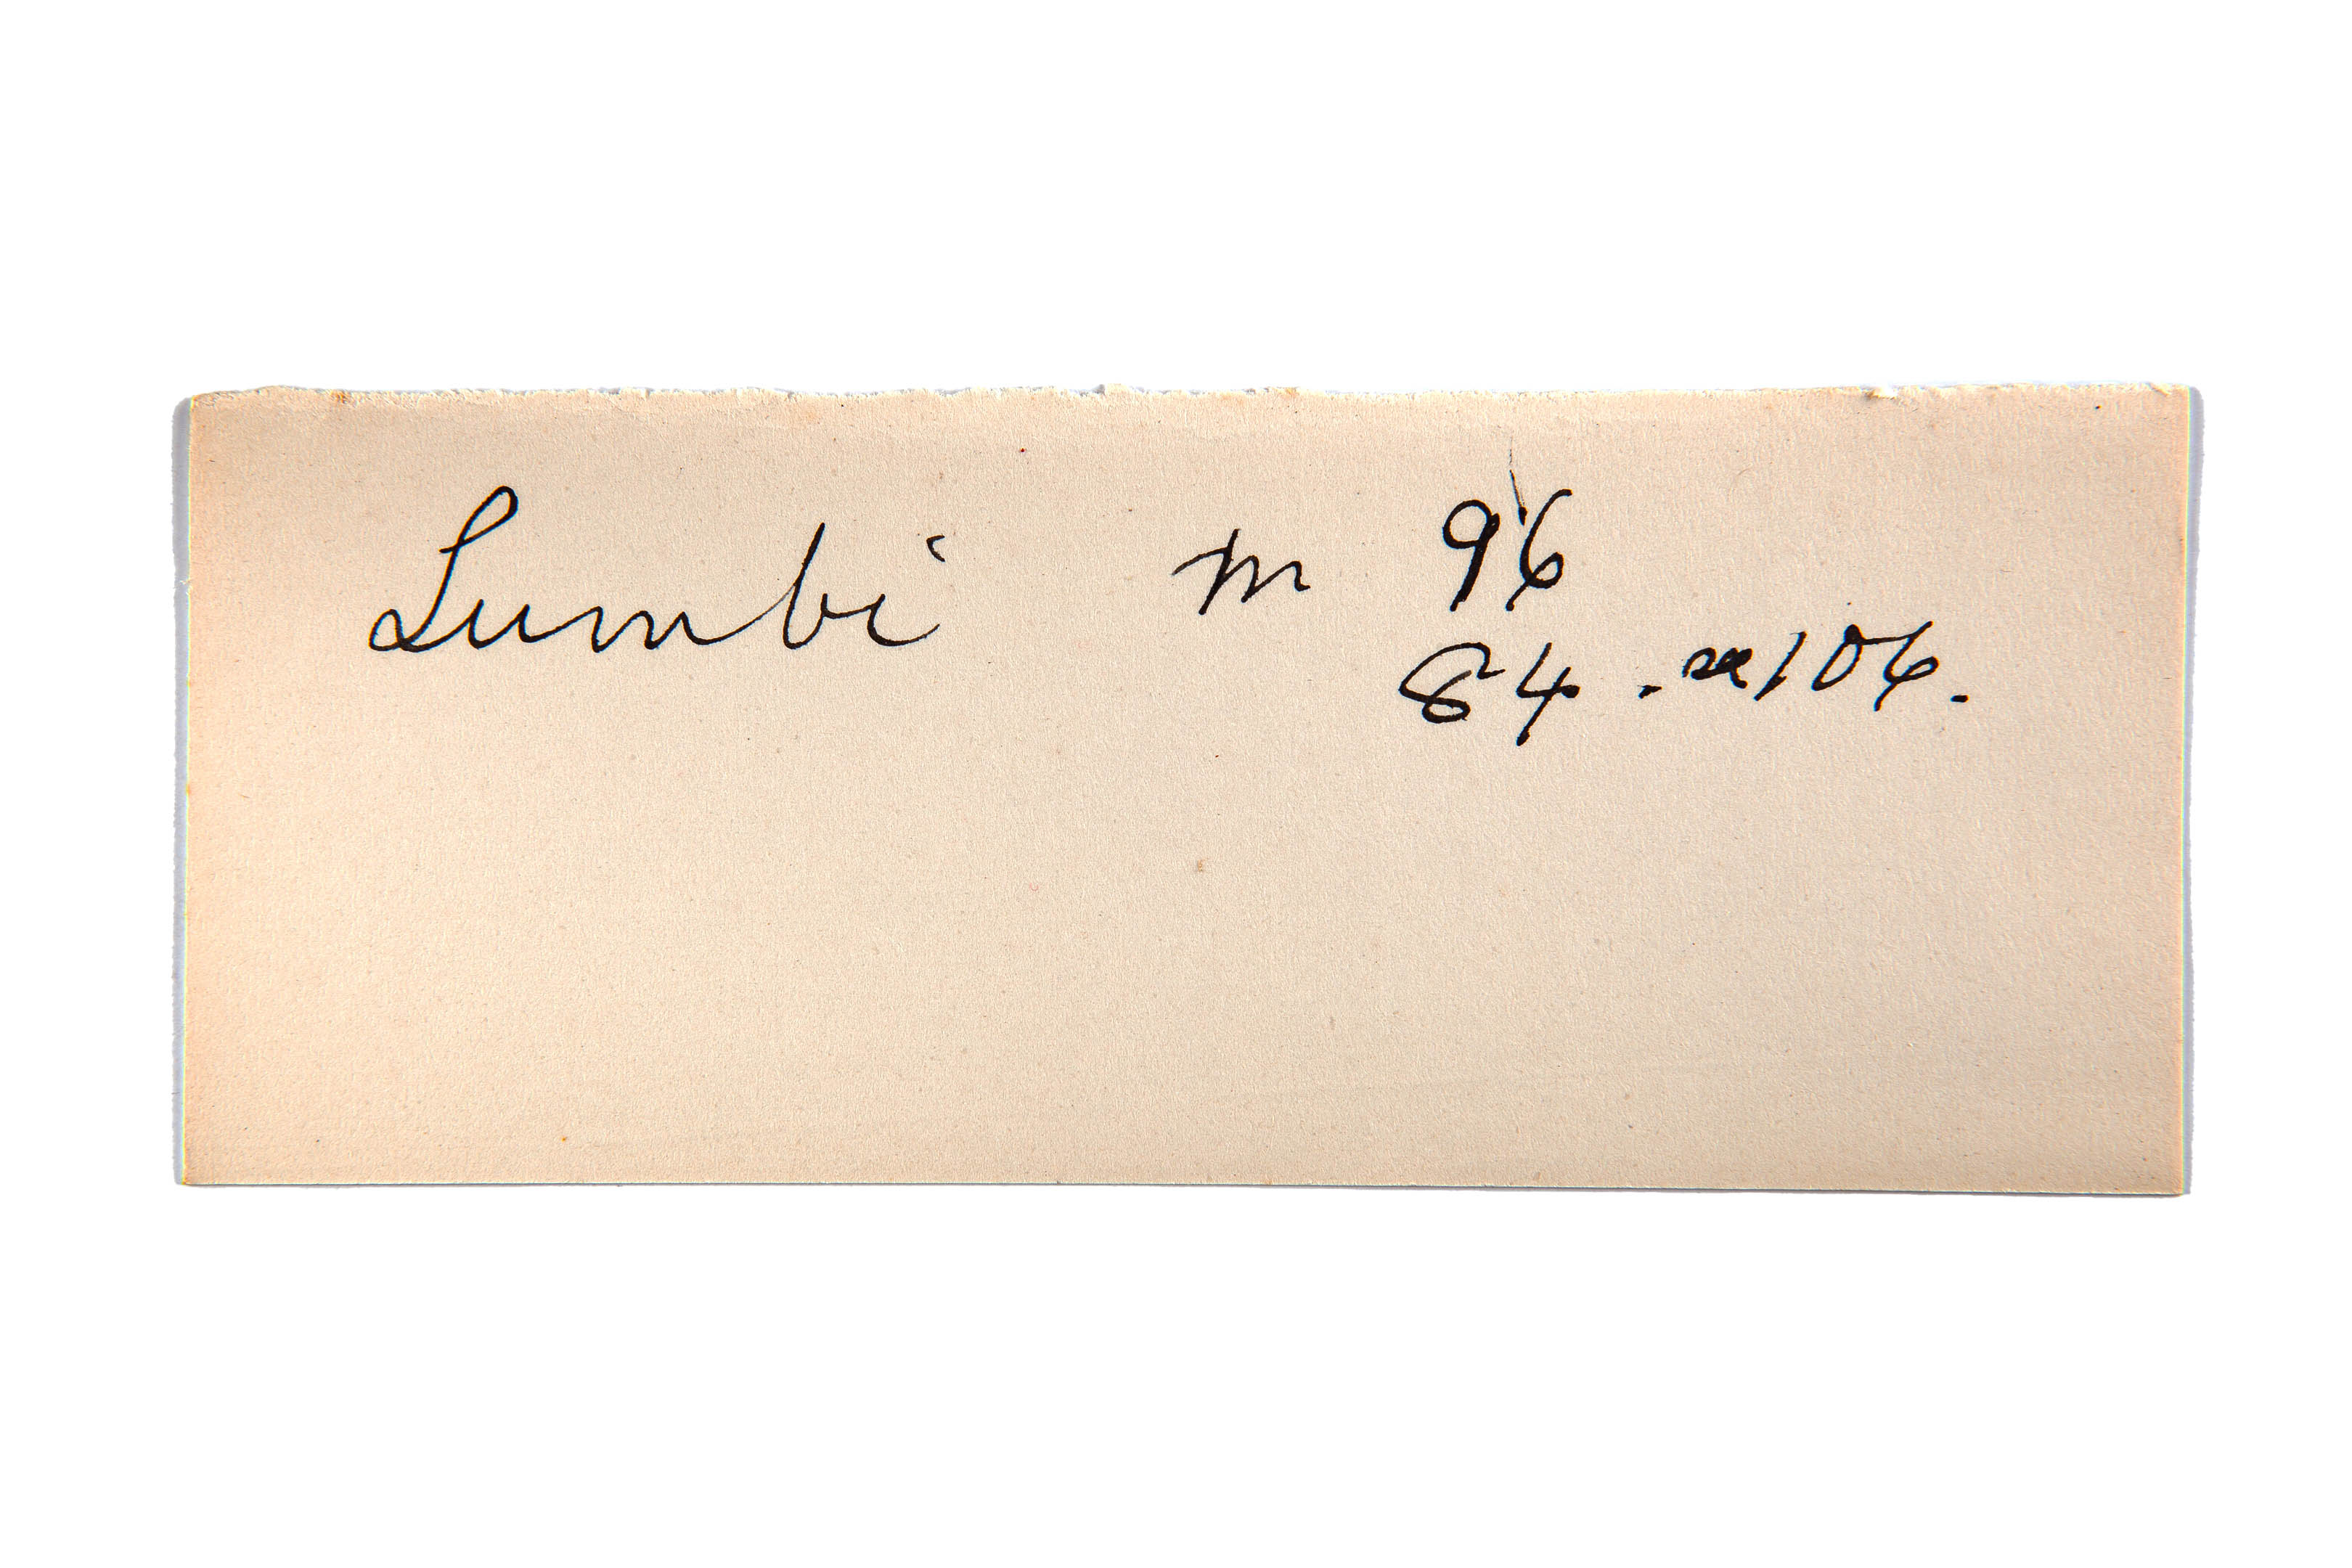 Lumbi m 96
84. 106.